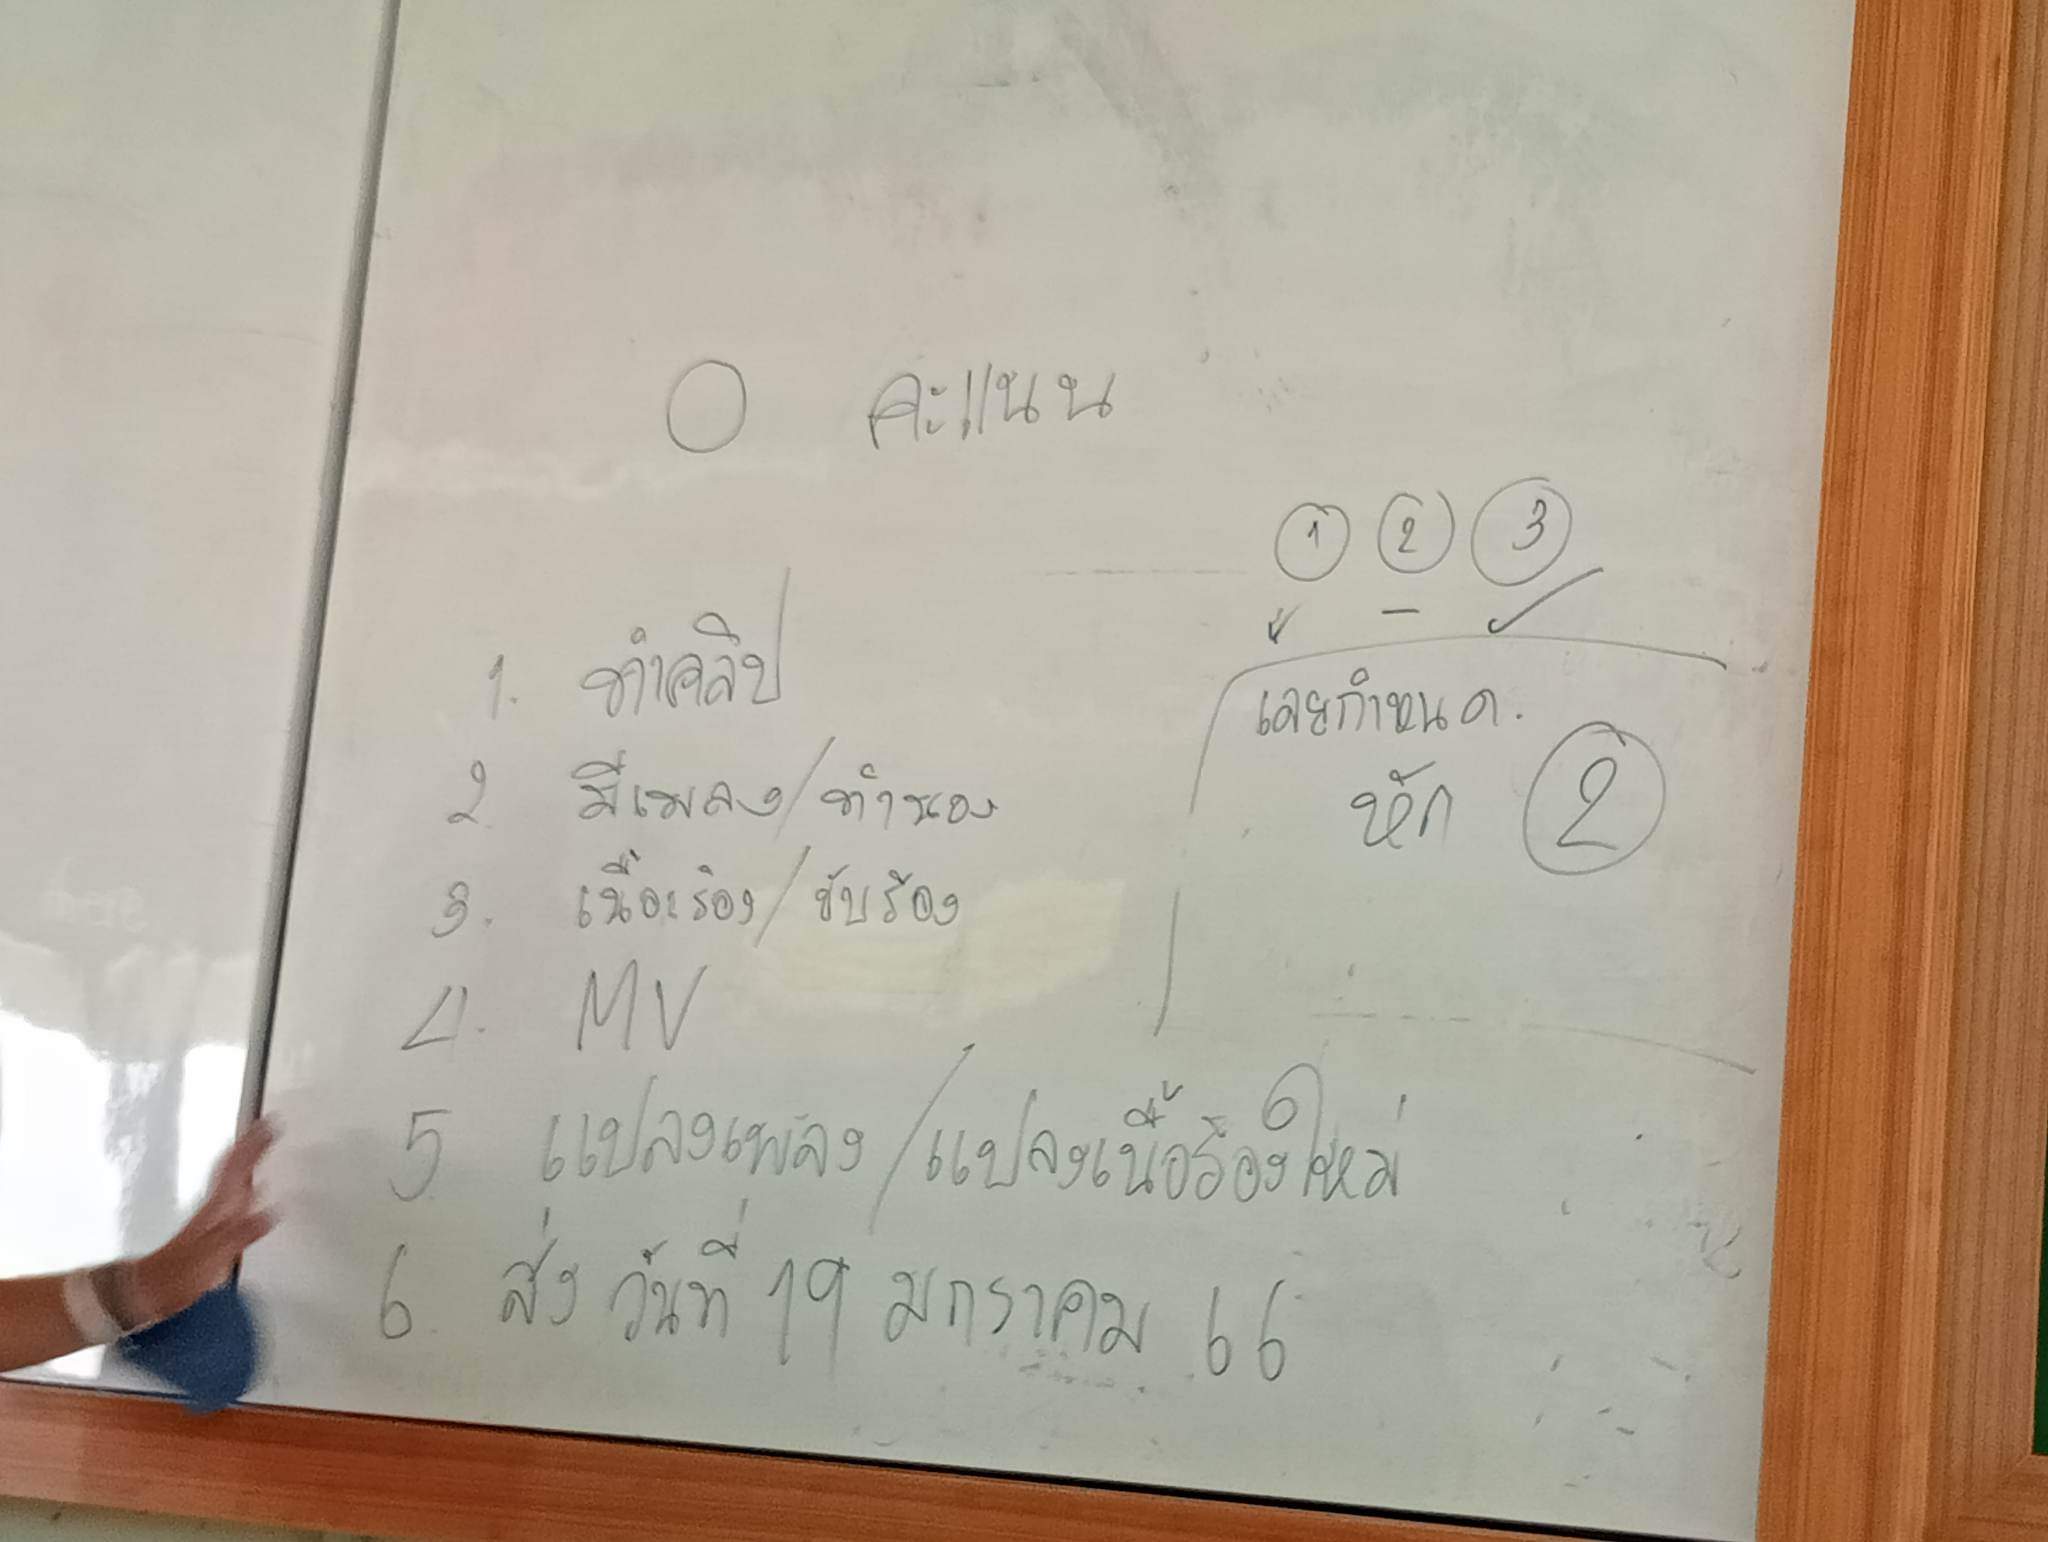 O คะแนน
1 2 3
1. ทำคลิป
2. มีเพลง/ทำนอง
3. เนื้อร้อง/ขับร้อง
4. MV
5 แปลงเพลง/แปลงเนื้อร้องใหม่
6. ส่ง วันที่ 19 มกราคม 66
เลยกำหนด.
หัก 2